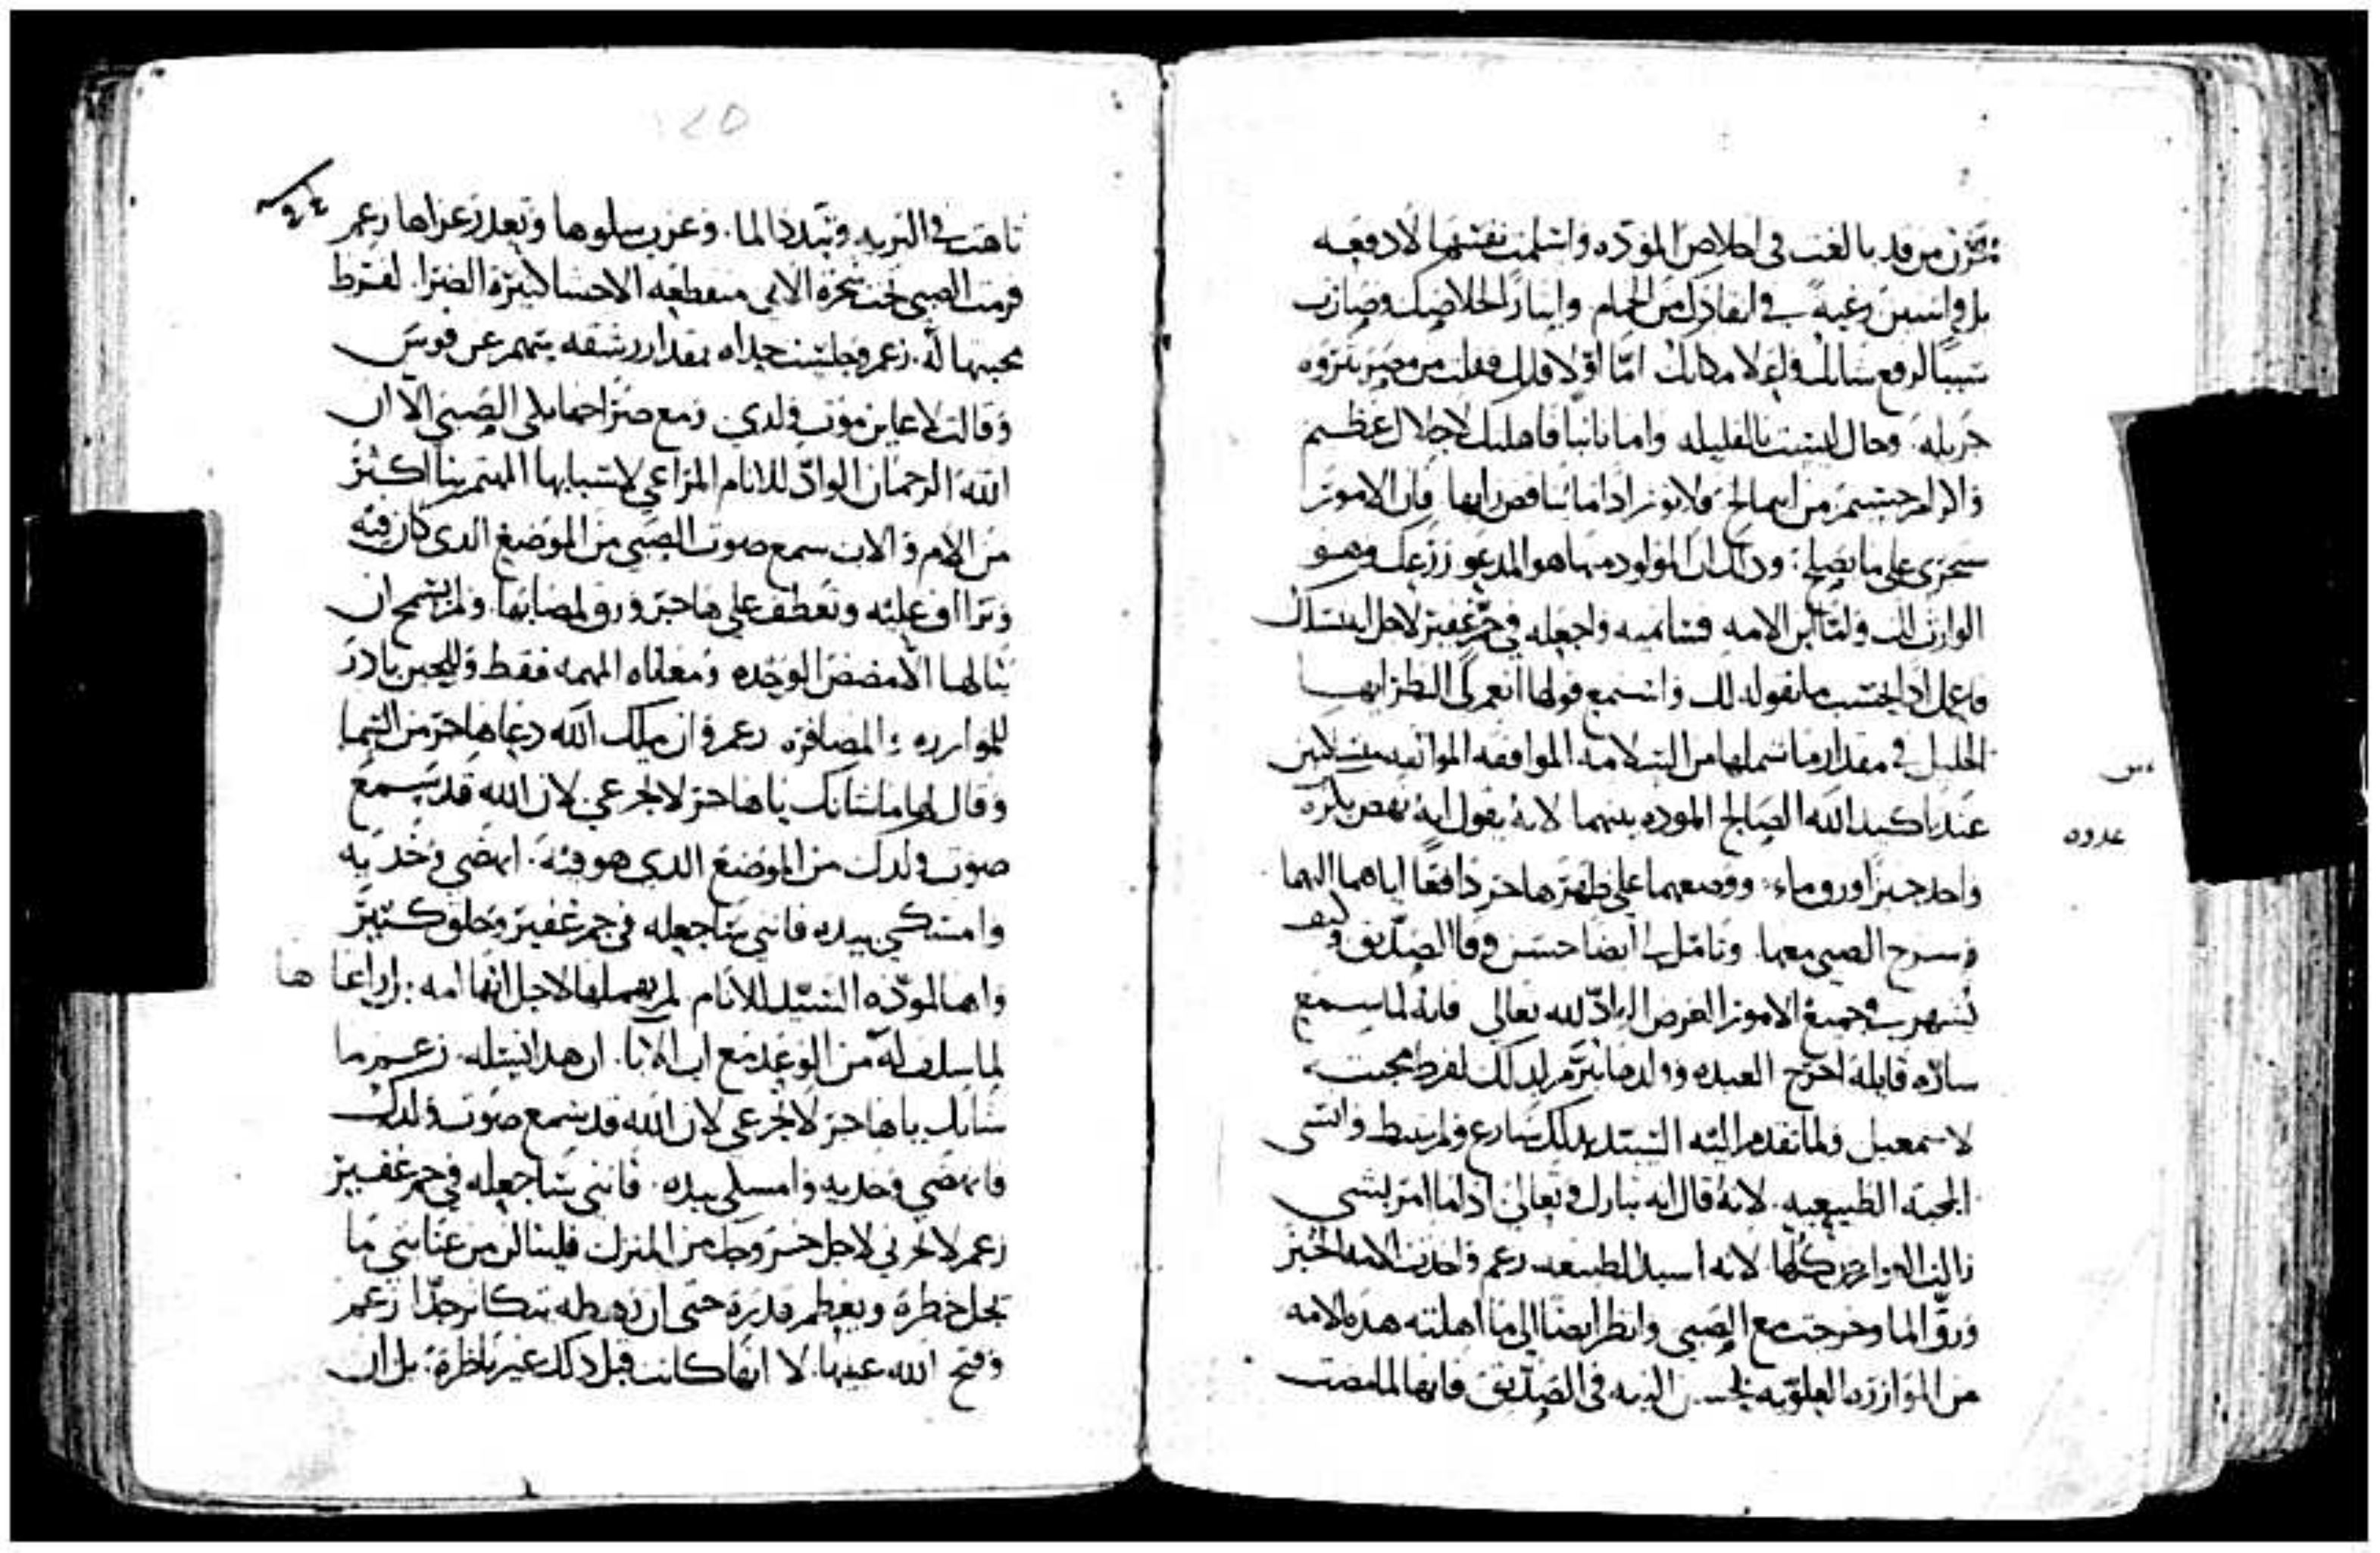 تحزن من قد بالغت في اخلاص المودة واسلمت نفسها لا دفعه
بل وانسين رغبة في انقادك من الحمام وايثار الخلاصك وصارت
سببا لرفع شانك واعلا مكانك اما اولا فلك فقلت من مصر بثروه
جزيله. وحال ليست بالقليله واما ثانيا فاهلتك لاجلال عظيم
واكرام جسيم من ابيمالخ فلا توثر ادا ما يناقض رايها فان الامور
ستجرى على ما يصلح: ودلك ان المولود منها هو المدعو زرعك وهو
الوارث لك ولما ابن الامه فسانميه واجعله في جم غفير لاجل انه نسلك
فاعمل ادا بحسب ما تقوله لك واستمع قولها انعم لي النظر ايها
الخليل في مقدار ما شملها من السلامه الموافقه
عند تاكيد الله الصالح الموده بينهما لانه يقول انه نهض باكره
واخد خبزا وزق ماء: ووضعهما على ظهر هاجر دافعا اياهما اليها
وسرح الصبي معها. وتامل لي ايضا حسن وفا الصديق وكيف
يشهر في جميع الامور الغرض الواد لله تعالى فانه لما سمع
ساره قايله اخرج العبده وولدها تبرم لدلك لفرط محبته
لاسمعيل ولما تقدم اليه السيد بدلك سارع ولم يبط وانسي
المحبه الطبيعيه. لانه قال انه تبارك وتعالى ادا ما امر بشي
زالت العوارض كلها لانه اسيد الطبيعه زعم واخدت الامه الخبز
وزق الما وخرجت مع الصبي وانظر ايضا الى ما اهلته هده الامه
من الموازره العلويه لحسن النيه في الصديق فانها لما مضت
عدوه
تاهت في البريه وتبدد الما. وعزب سلوها وتعدر عزاها زعم
فرمت الصبي تحت شجرة الابى متقطعه الاحشا كبيرة الضرا. لفرط
محبتها له. زعم وجلست حداه بمقدار رشقه سهم عن قوس
وقالت لا عاين موت ولدي ومع صراخها بكى الصبي الا ان
الله الرحمان الواد للانام المراعي لاسبابها المهتم بنا اكثر
من الام والاب سمع صوت الصبي من الموضع الدى كان فيه
وتراا ف عليه وتعطف على هاجر ورق لمصابها. ولم يسمح ان
ينالها الا مضض الوحده ومعاناه المهمه فقط وللحين بادر
للموازره والمضافره زعم وان ملك الله دعا هاجر من السما
وقال لها ما شانك يا هاجر لا تجزعي لان الله قد سمع
صوت ولدك من الموضع الدي هو فيه. انهضي وخد يه
وامسكي بيده فانني ساجعله في جم غفير وخلق كثير
واها لمودة السيد للانام لم يهملها لاجل انها امه: بل راعا ها
لما سلف له من الوعد مع اب الابا. ان هدا نسله. زعم ما
شانك يا هاجر لا تجزعي لان الله قد سمع صوت ولدك
فانهضي وخديه وامسكي بيده. فانني ساجعله في جم غفير
زعم لا تحزني لاجل خروجك من المنزل فلينالن من عنايتي ما
يجل خطرة ويعظم قدرة حتى ان رهطه يتكاثر جدا زعم
وفتح الله عينيها. لا انها كانت قبل دلك غير ناظرة: بل ان